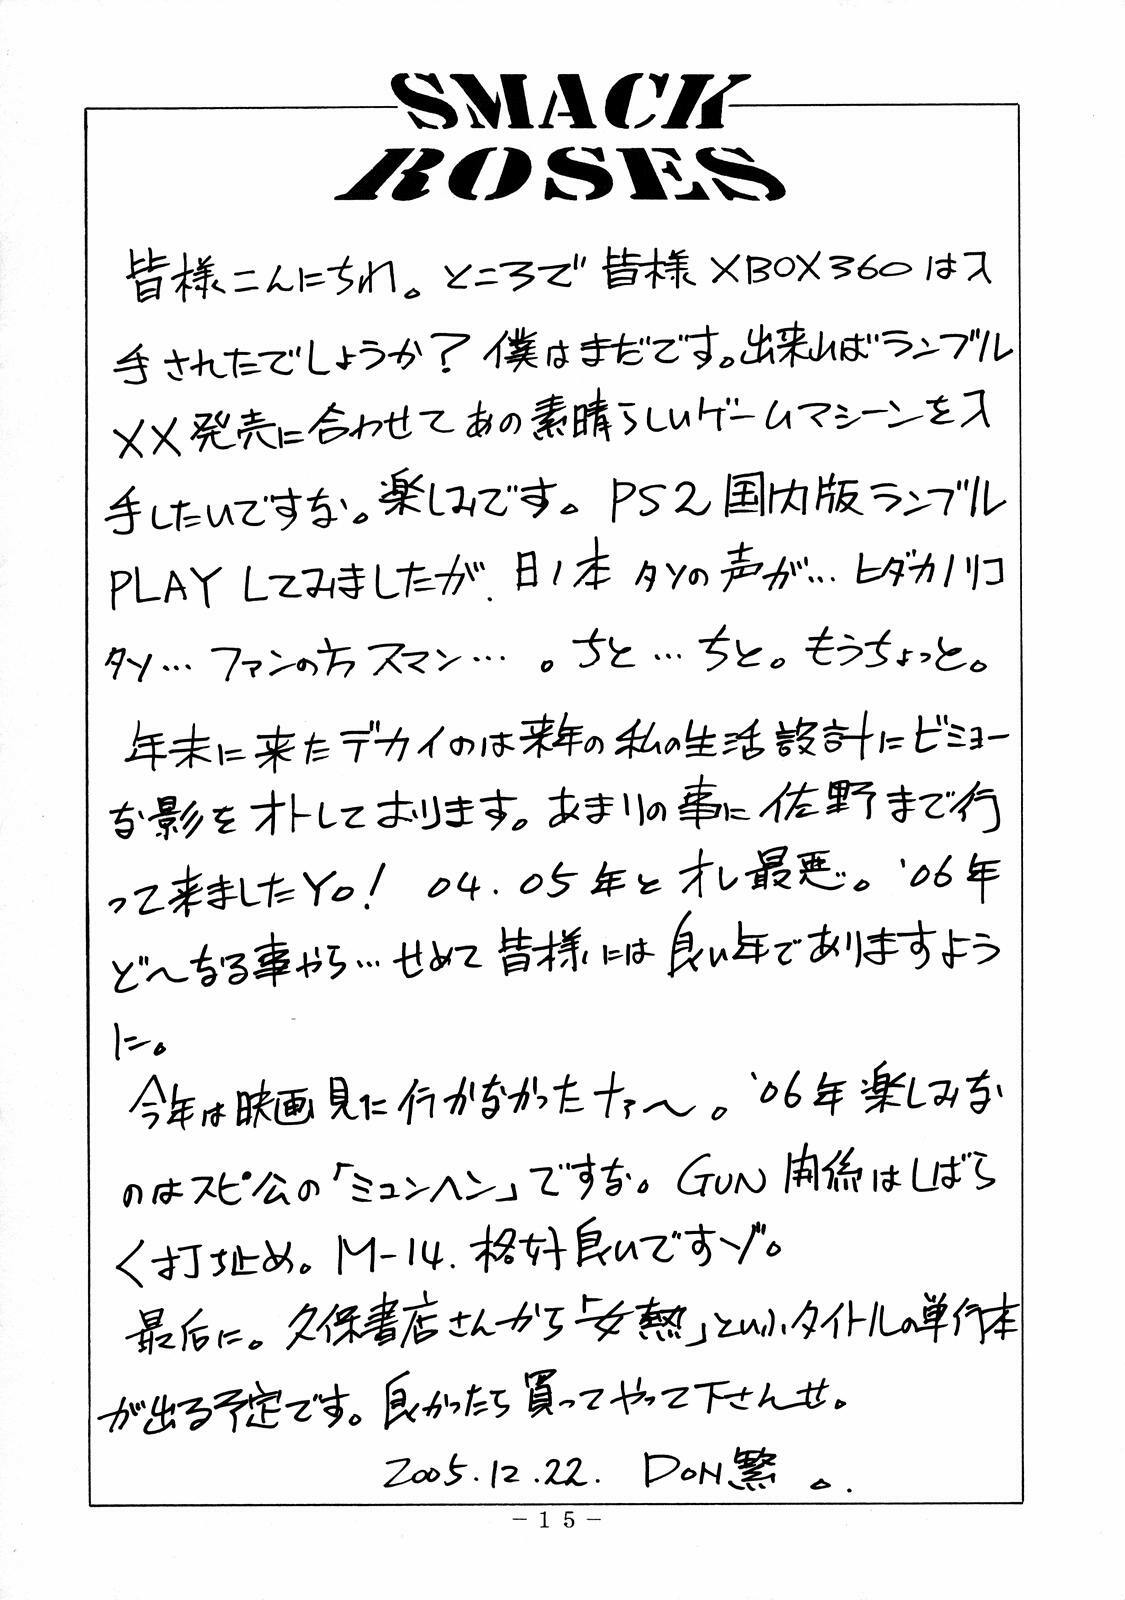 SMACK
ROSES
皆様こんにちわ。ところで皆様XBOX360は入
手されたでしょうか？僕はまだです。出来ればランブル
XX発売に合わせてあの素晴らしいゲームマシーンを入
手したいですな。楽しみです。PS2国内版ランブル
PLAYしてみましたが、日ノ本タソの声が…ヒダカノリコ
タソ…ファンの方スマン…。ちと…ちと。もうちょっと。
年末に来たデカイのは来年の私の生活設計にビミョー
な影をオトしております。あまりの事に佐野まで行
って来ましたYo! 04.05年とオレ最悪。'06年
ど〜なる事やら…せめて皆様には良い年でありますよう
に。
今年は映画見に行かなかったナァ〜。'06年楽しみな
のはスピ公の「ミュンヘン」ですな。GUN関係はしばら
く打ち止め。M-14.格好良いですゾ。
最后に。久保書店さんから「女熱」というタイトルの単行本
が出る予定です。良かったら買ってやって下さんせ。
2005.12.22. DON繁 。.
-15-